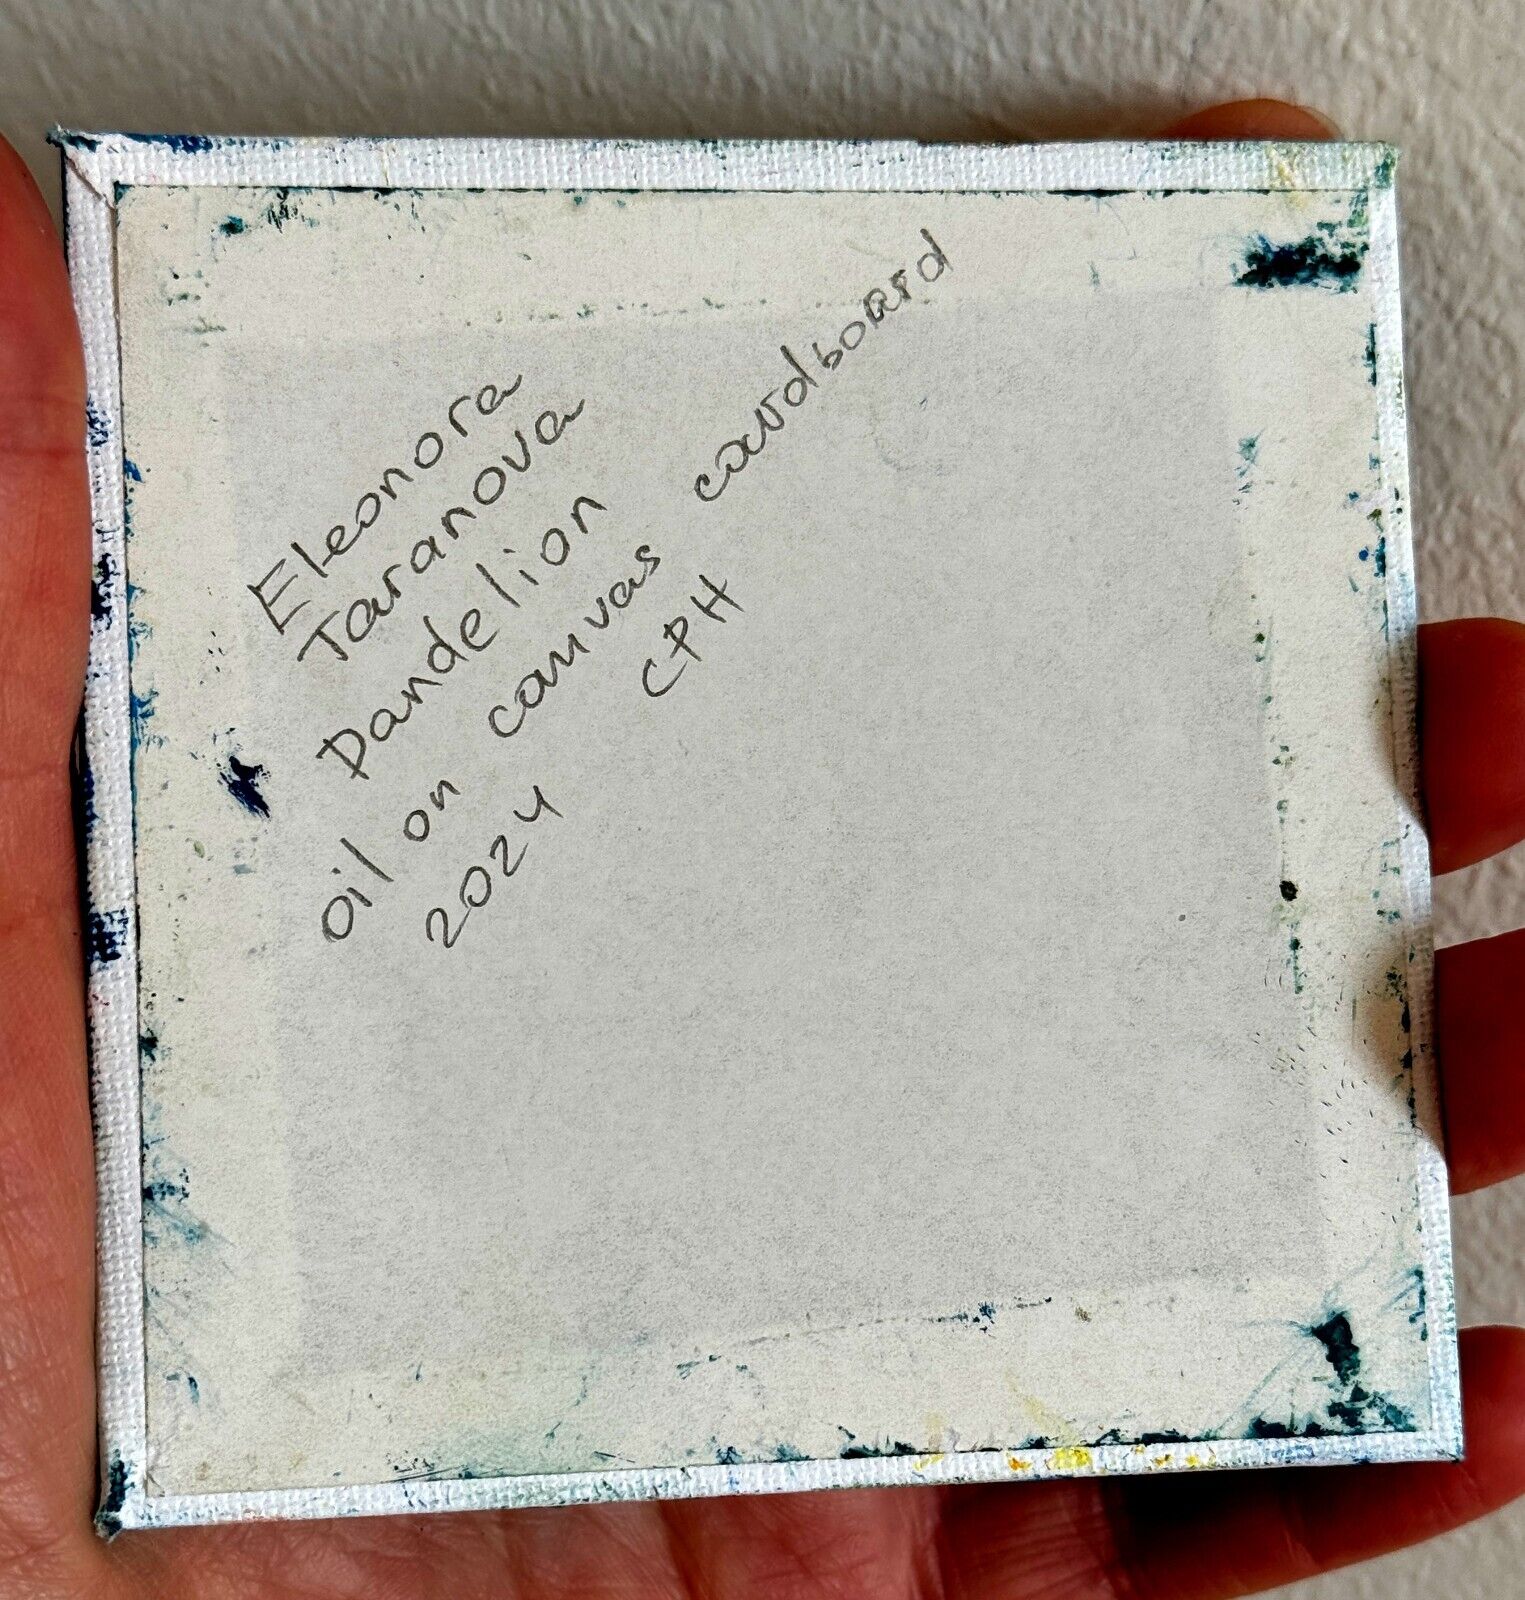 Eleonora
Taranova
Dandelion
oil on canvas cardboard
2024 CPH